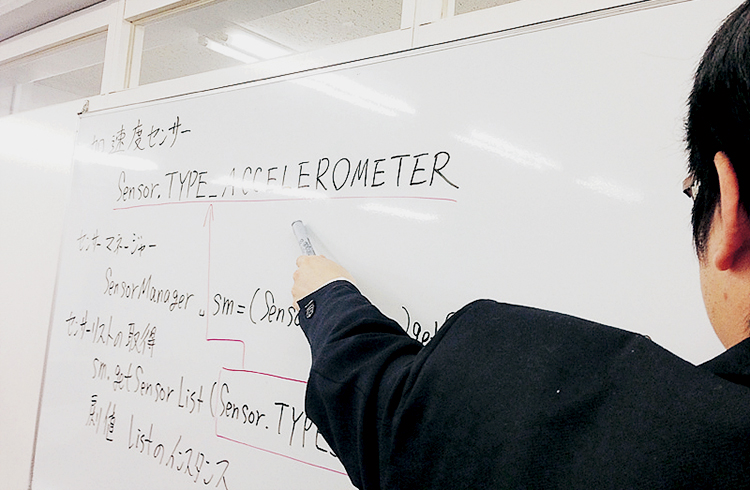 加速度センサー
Sensor.TYPE_ACCELEROMETER
センサーマネージャー
SensorManager sm=(Sens )get
センサーリストの取得
sm.getSensorList(Sensor.TYPE
戻値 Listのインスタンス